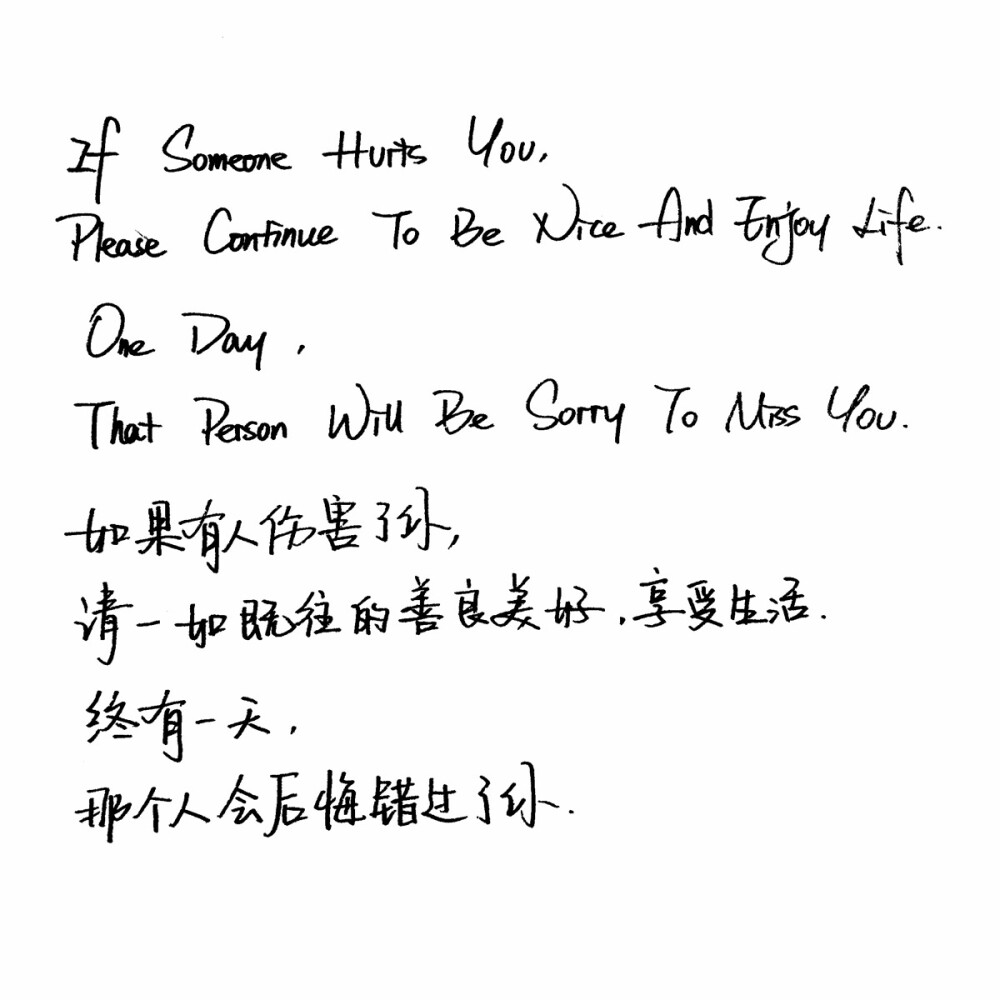 If Someone Hurts You,
Please Continue To Be Nice And Enjoy Life.
One Day,
That Person Will Be Sorry To Miss You.
如果有人伤害了你,
请一如既往的善良美好,享受生活.
终有一天,
那个人会后悔错过了你.